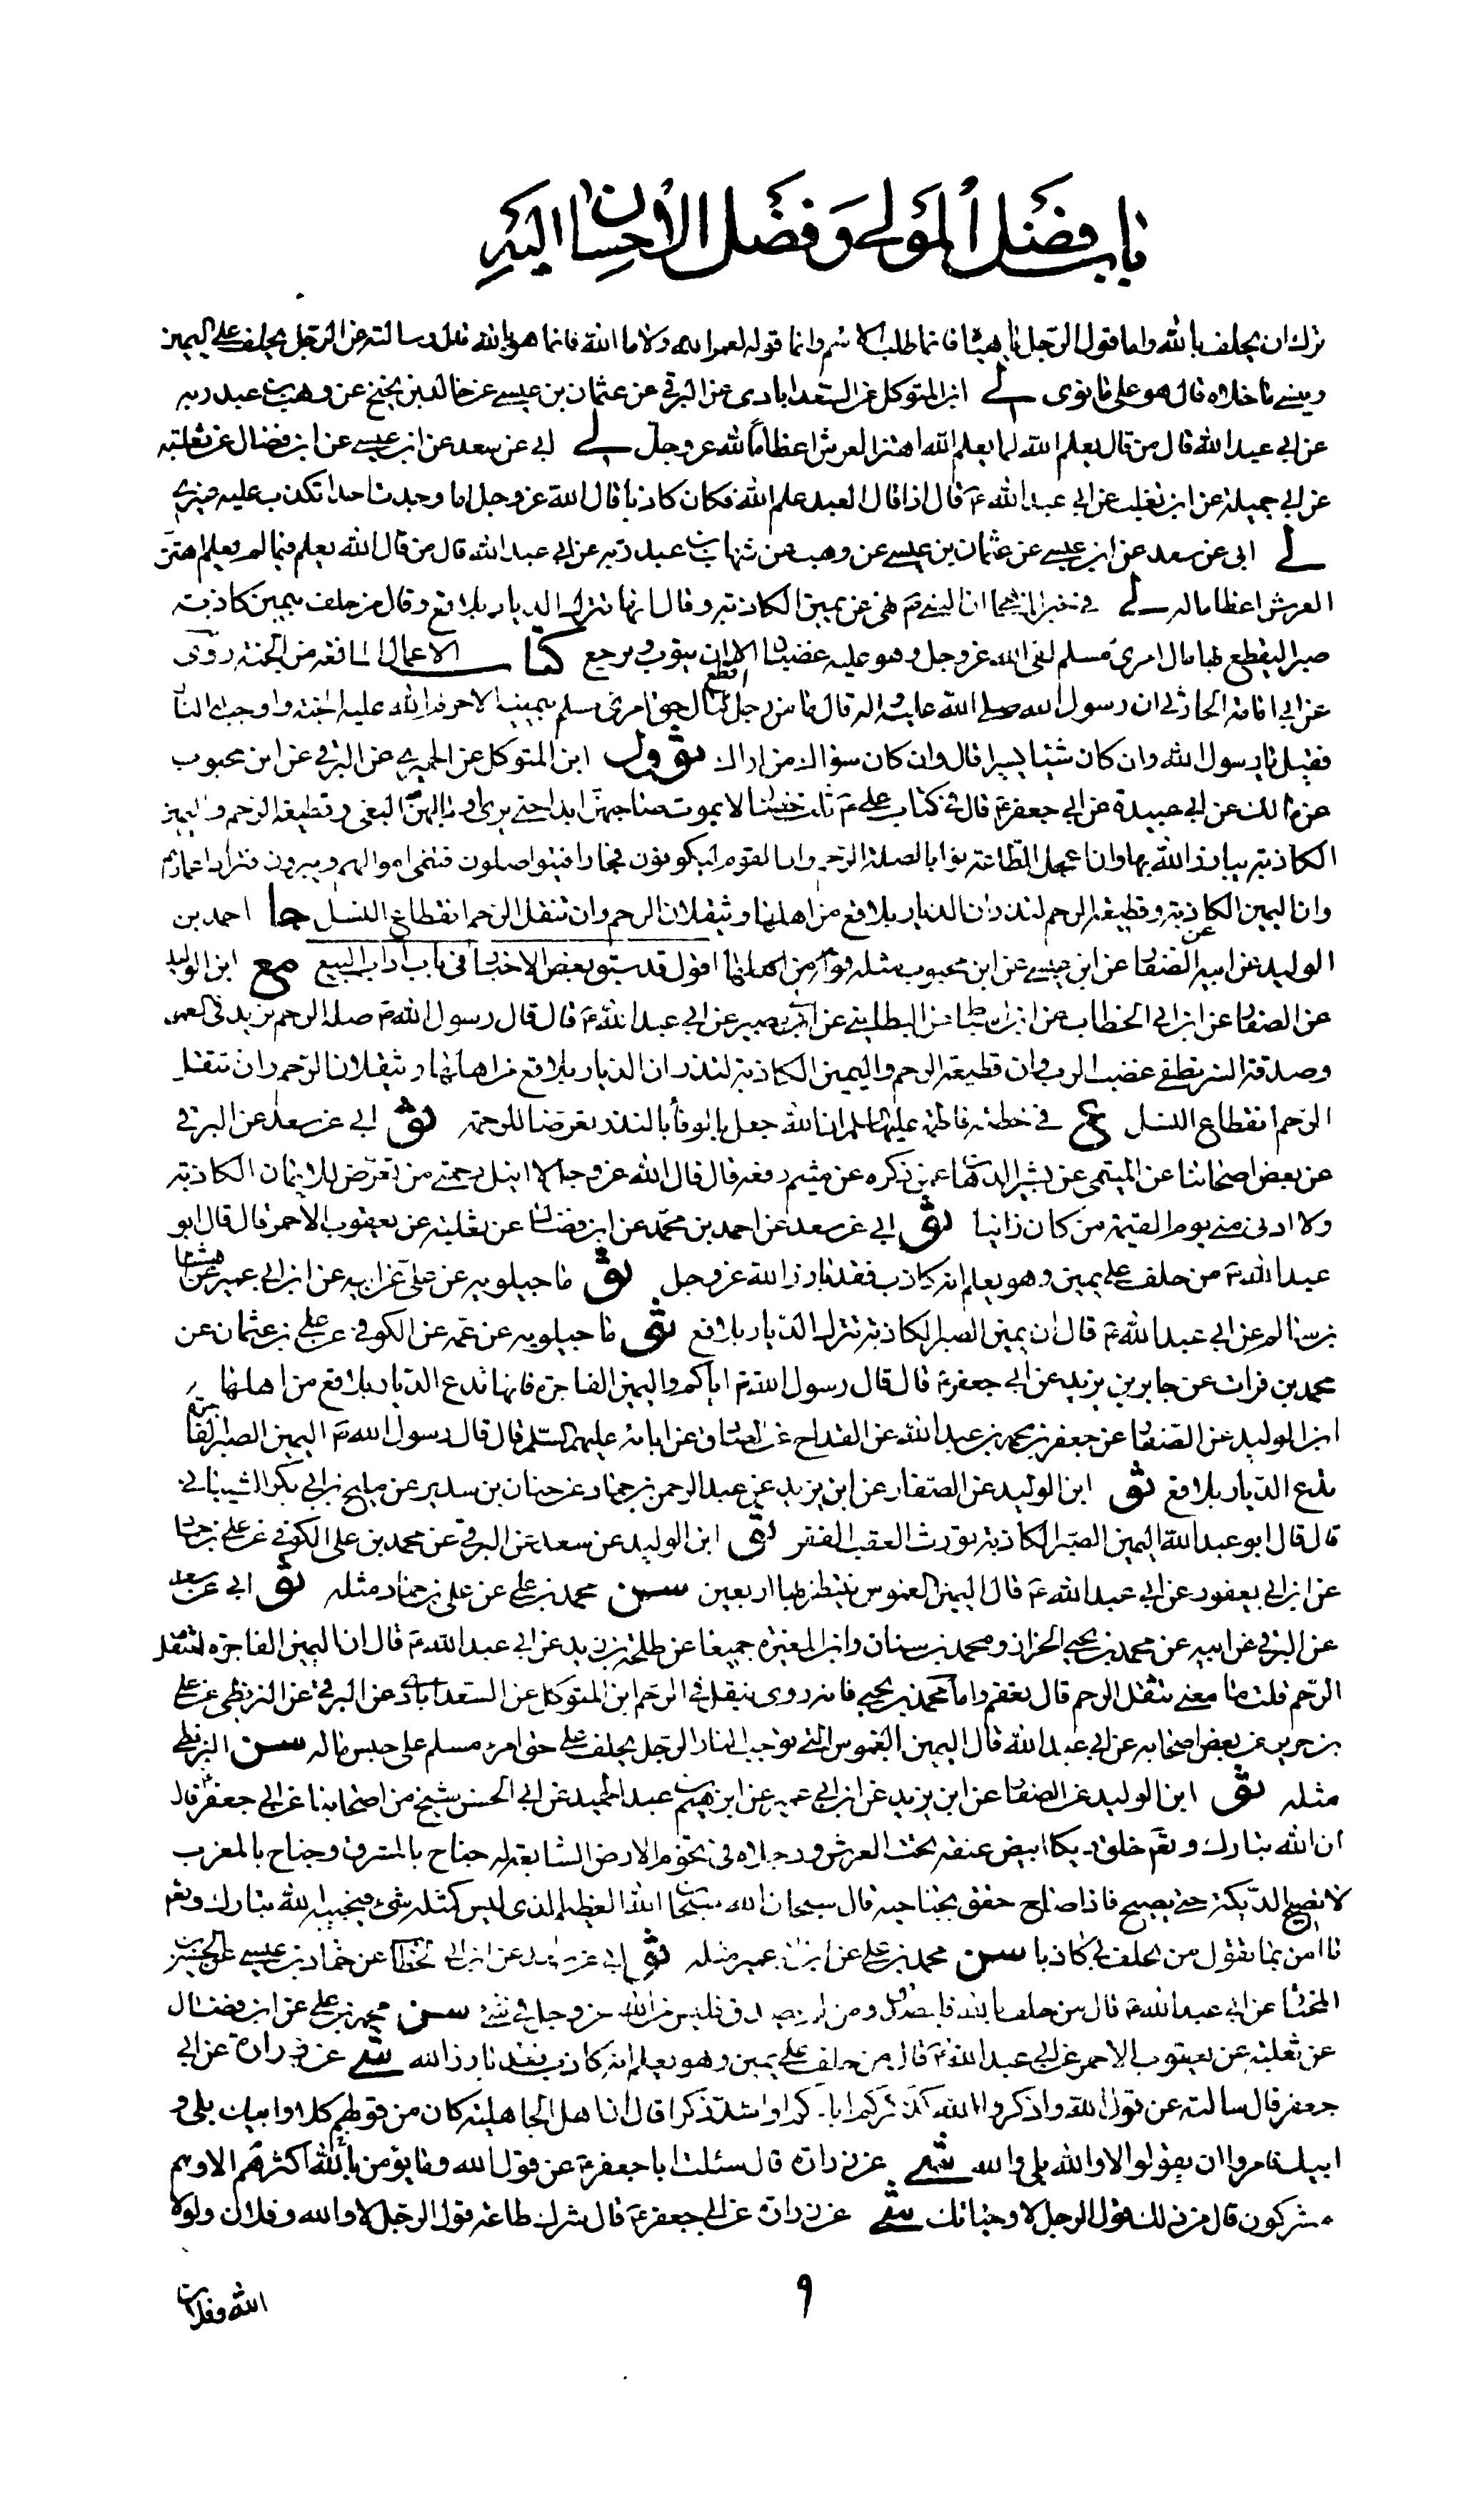 باب فضل المولى وفضل الاحسان اليه
ترك ان يحلف بالله واما قول الرجل ياهناه فانما طلب الاسم وانما قوله لعمر الله ولاها الله فانما هو بالله قال وسالته عن الرجل يحلف على اليمين
وينسى ما خلاه قال هو على ما نوى لى ابن المتوكل عن السعدابادى عن البرقى عن عثمان بن عيسى عن خالد بن نجيح عن وهب بن عبد ربه
عن ابى عبد الله قال من قال يعلم الله لما يعلم الله اهتز العرش اعظاما لله عز وجل لى ابى عن سعد عن ابن عيسى عن ابن فضال عن ثعلبة
عن ابى جميلة عن ابن تغلب عن ابى عبد الله ع قال اذا قال العبد علم الله فكان كاذبا قال الله عز وجل اما وجدت احدا تكذب عليه غيرى
لى ابى عن سعد عن ابن عيسى عن عثمان بن عيسى عن وهب عن شهاب بن عبد ربه عن ابى عبد الله قال من قال الله يعلم فيما لم يعلم اهتز
العرش اعظاما له لى فى خبر المناهى ان النبى ص نهى عن يمين الكاذبة وقال انها تترك الديار بلاقع وقال من حلف بيمين كاذبة
صبرا ليقطع بها مال امرئ مسلم لقى الله عز وجل وهو عليه غضبان الا ان يتوب ويرجع كتاب الاعمال المانعة من الجنة روى
عن ابى امامة الحارثى ان رسول الله صلى الله عليه واله قال ما من رجل اقتطع مال حق امرئ مسلم بيمينه الا حرم الله عليه الجنة واوجب له النار
فقيل يا رسول الله وان كان شيئا يسيرا قال وان كان سواك من اراك ثو ول ابن المتوكل عن الحميرى عن البرقى عن ابن محبوب
عن مالك عن ابى عبيدة عن ابى جعفر ع قال فى كتاب على ع ثلث خصال لا يموت صاحبهن ابدا حتى يرى وبالهن البغى وقطيعة الرحم واليمين
الكاذبة يبارز الله بها وان اعجل الطاعة ثوابا لصلة الرحم وان القوم ليكونون فجارا فيتواصلون فتنمى اموالهم ويبرون فتزاد اعمارهم
وان اليمين الكاذبة وقطيعة الرحم لتذران الديار بلاقع من اهلها ويثقلان الرحم وان تنقل الرحم انقطاع النسل جا احمد بن
الوليد عن ابيه عن الصفار عن ابن عيسى عن ابن محبوب مثله من اهلها اقول قد سبق بعض الاخبار فى باب اداب البيع مع ابن الوليد
عن الصفار عن ابن ابى الخطاب عن ابن اسباط عن البطاينى عن ابى بصير عن ابى عبد الله ع قال قال رسول الله ص صلة الرحم تزيد فى العمر
وصدقة السر تطفى غضب الرب وان قطيعة الرحم واليمين الكاذبة لتذران الديار بلاقع من اهلها ويثقلان الرحم وان تنقل
الرحم انقطاع النسل ع فى خطبة فاطمة عليها السلام ان الله جعل الوفأ بالنذر تعرضا للرحمة ثو ابى عن سعد عن البرقى
عن بعض اصحابنا عن الميثمى عن بشير الدهان عمن ذكره عن ميثم رفعه قال قال الله عز وجل لا انيل رحمتى من تعرض للايمان الكاذبة
ولا ادنى منى يوم القيمة من كان زانيا ثو ابى عن سعد عن احمد بن محمد عن ابن فضال عن ثعلبة عن يعقوب الاحمر قال قال ابو
عبد الله ع من حلف على يمين وهو يعلم انه كاذب فقد بارز الله عز وجل ثو ماجيلويه عن على عن ابيه عن ابن ابى عمير عن هشام
بن سالم عن ابى عبد الله ع قال ان يمين الصبر الكاذبة تترك الديار بلاقع ثو ماجيلويه عن عمه عن الكوفى عن على بن عثمان عن
محمد بن فرات عن جابر بن يزيد عن ابى جعفر ع قال قال رسول الله ص اياكم واليمين الفاجرة فانها تدع الديار بلاقع من اهلها
ابن الوليد عن الصفار عن جعفر بن محمد بن عبد الله عن القداح عن الصادق عن ابائه عليهم السلم قال قال رسول الله ص اليمين الصبر الفاجرة
تدع الديار بلاقع ثو ابن الوليد عن الصفار عن ابن يزيد عن عبد الرحمن بن حماد عن حنان بن سدير عن مليح بن ابى بكر الشيبانى
قال قال ابو عبد الله اليمين الصبر الكاذبة تورث العقب الفقر ثو ابن الوليد عن سعد عن البرقى عن محمد بن على الكوفى عن على بن حماد
عن ابن ابى يعفور عن ابى عبد الله ع قال اليمين الغموس ينتظر بها اربعين سن محمد بن على عن على بن حماد مثله ثو ابى عن سعد
عن البرقى عن ابيه عن محمد بن يحيى الخزاز ومحمد بن سنان وابن المغيرة جميعا عن طلحة بن زيد عن ابى عبد الله ع قال ان اليمين الفاجرة لتنقل
الرحم قلت ما معنى تنقل الرحم قال تعقم واما محمد بن يحيى فانه روى ينقل فى الرحم ابن المتوكل عن السعدابادى عن البرقى عن البزنطى عن على
بن حريز عن بعض اصحابه عن ابى عبد الله قال اليمين الغموس التى توجب النار الرجل يحلف على حق امرء مسلم على حبس ماله سن البزنطى
مثله ثو ابن الوليد عن الصفار عن ابن يزيد عن ابن ابى عمير عن ابراهيم بن عبد الحميد عن ابى الحسن شيخ من اصحابنا عن ابى جعفر ع قال
ان الله تبارك وتعم خلق ديكا ابيض عنقه تحت العرش ورجلاه فى تخوم الارض السابعة له جناح بالمشرق وجناح بالمغرب
لا تصيح الديكة حتى يصيح فاذا صاح خفق بجناحيه قال سبحان الله سبحان الله العظيم الذى ليس كمثله شئ فيجيبه الله تبارك وتعم
ما امن بما تقول من يحلف بى كاذبا سن محمد بن على عن ابن ابى عمير مثله ثو ابى عن سعد عن ابن ابى الخطاب عن حماد بن عيسى عن الحسين بن
المختار عن ابى عبد الله ع قال من حلف بالله فليصدق ومن لم يصدق فليس من الله عز وجل فى شئ سن محمد بن على عن ابن فضال
عن ثعلبة عن يعقوب الاحمر عن ابى عبد الله ع قال من حلف على يمين وهو يعلم انه كاذب فقد بارز الله شى عن زرارة عن ابى
جعفر قال سالته عن قول الله واذكروا الله كذكركم اباءكم او اشد ذكرا قال ان اهل الجاهلية كان من قولهم كلا وابيك بلى و
ابيك فامروا ان يقولوا لا والله بلى والله شى عن زرارة قال سئلت ابا جعفر ع عن قول الله وما يؤمن بالله اكثرهم الا وهم
مشركون قال من ذلك قول الرجل لا وحياتك شى عن زرارة عن ابى جعفر ع قال شرك طاعة قول الرجل لا والله وفلان ولولا
٩
الله وفلان